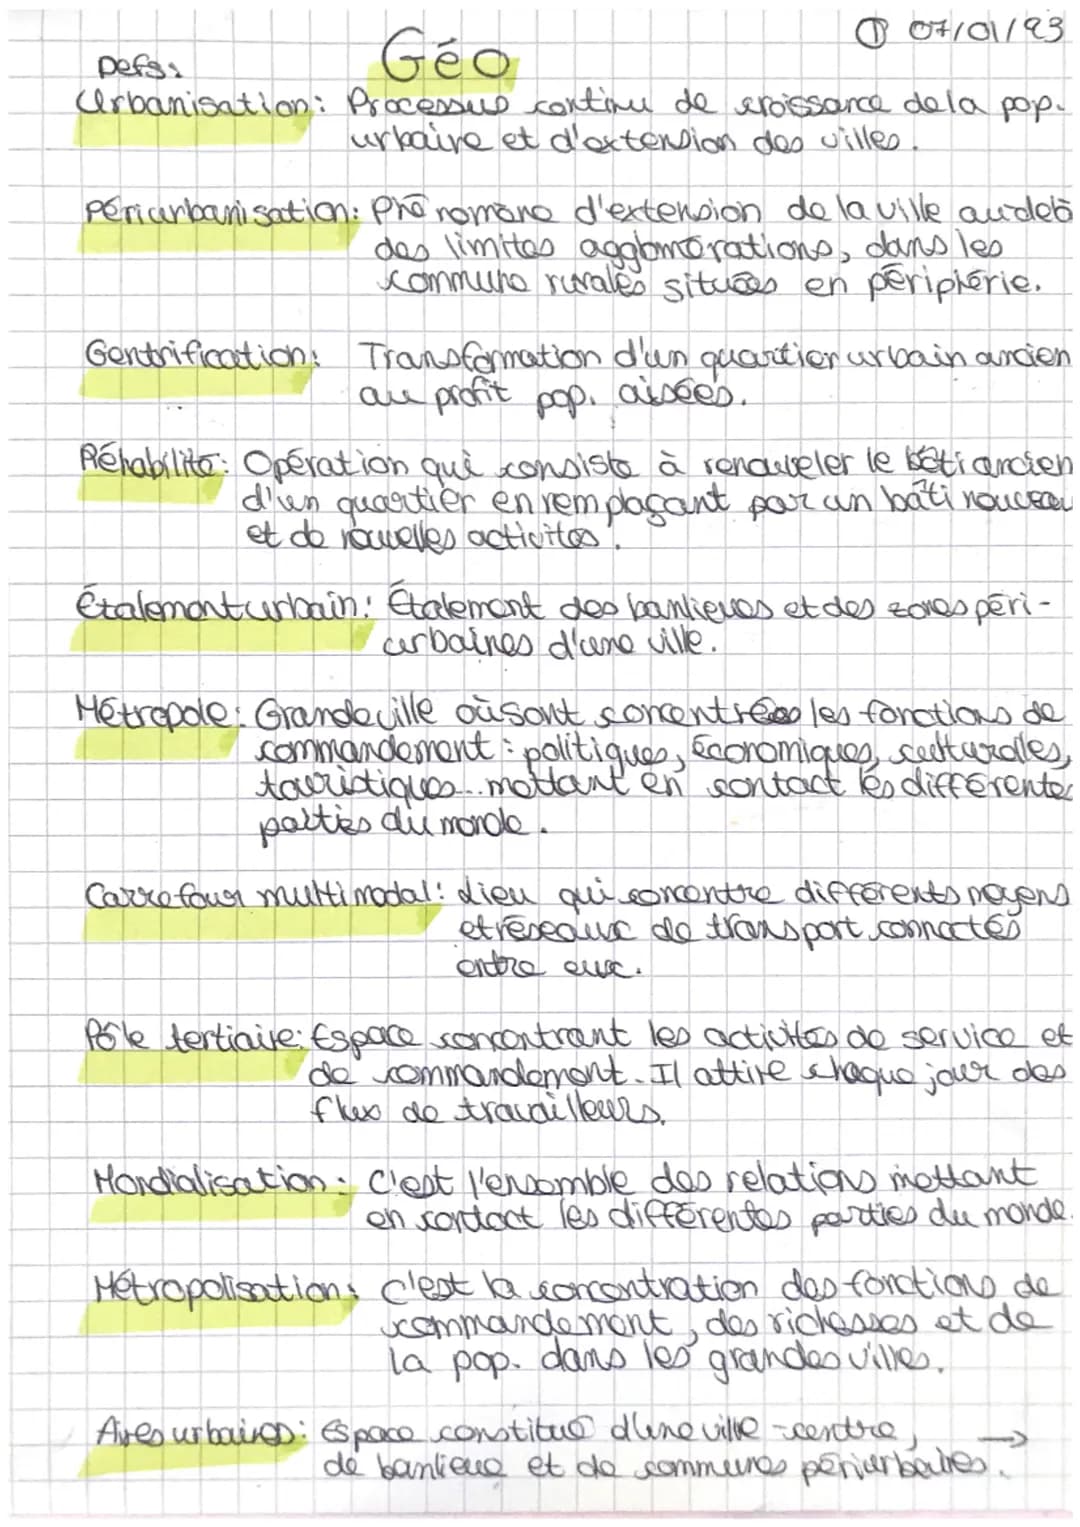 ① 07/01/23
Géo
Defs:
Urbanisation: Processus continu de croissance de la pop.
urbaine et d'extension des villes.
Périurbanisation: Phénomène d'extension de la ville au delà
des limites agglomérations, dans les
commune rurales situées en périphérie.
Gentrification: Transformation d'un quartier urbain ancien
au profit pop. aisées.
Réhabilité: Opération qui consiste à renouveler le bâti ancien
d'un quartier en remplaçant par un bâti nouveau
et de nouvelles activités.
Étalement urbain: Étalement des banlieues et des zones péri-
urbaines d'une ville.
Métropole: Grande ville où sont concentrées les fonctions de
commandement: politiques, économiques, culturelles,
touristiques... mettant en contact les différentes
parties du monde.
Carrefour multimodal: Lieu qui concentre différents moyens
et réseaux de transport connectés
entre eux.
Pôle tertiaire: Espace concentrant les activités de service et
de commandement. Il attire chaque jour des
flux de travailleurs.
Mondialisation: C'est l'ensemble des relations mettant
en contact les différentes parties du monde.
Métropolisation: C'est la concentration des fonctions de
commandement, des richesses et de
la pop. dans les grandes villes.
Aires urbaines: Espace constitué d'une ville-centre, →
de banlieue et de communes périurbaines.